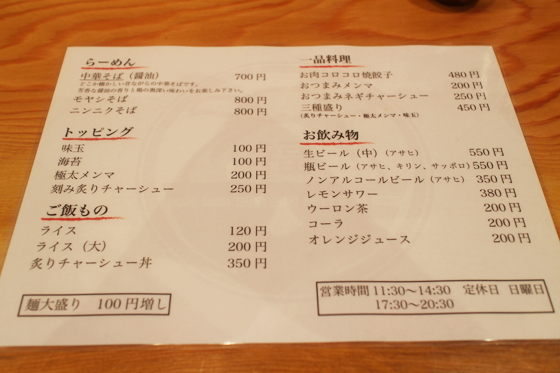 らーめん
中華そば（醤油） 700円
どこか懐かしい昔ながらの中華そばです。
芳香な醤油の香りと鶏の奥深い味わいをお楽しみ下さい。
モヤシそば 800円
ニンニクそば 800円
トッピング
味玉 100円
海苔 100円
極太メンマ 200円
刻み炙りチャーシュー 250円
ご飯もの
ライス 120円
ライス（大） 200円
炙りチャーシュー丼 350円
麺大盛り 100円増し
一品料理
お肉コロコロ焼餃子 480円
おつまみメンマ 200円
おつまみネギチャーシュー 250円
三種盛り 450円
（炙りチャーシュー・極太メンマ・味玉）
お飲み物
生ビール（中）（アサヒ） 550円
瓶ビール（アサヒ、キリン、サッポロ） 550円
ノンアルコールビール（アサヒ） 350円
レモンサワー 380円
ウーロン茶 200円
コーラ 200円
オレンジジュース 200円
営業時間 11:30～14:30 定休日 日曜日
17:30～20:30